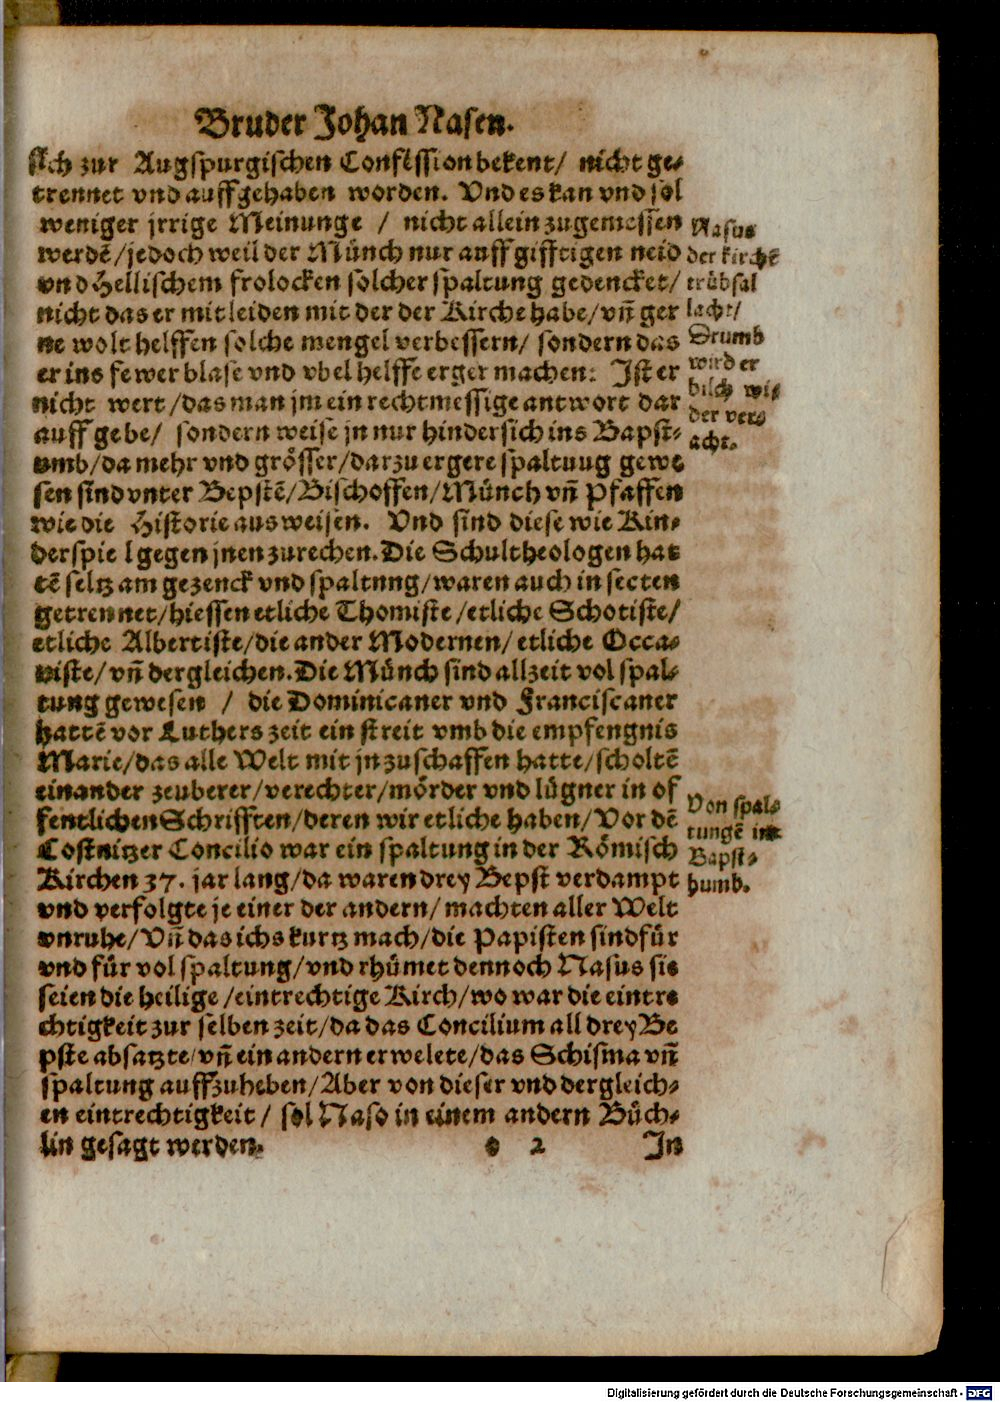 Bruder Johan Nasen.
sich zur Augspurgischen Confession bekent/ nicht ge-
trennet vnd auffgehaben worden. Vnd es kan vnd sol
weniger jrrige Meinunge / nicht allein zugemessen
werdẽ/jedoch weil der Münch nur auff gifftigen neid
vnd Hellischem frolocken solcher spaltung gedencket/
nicht das er mitleiden mit der der Kirche habe/vñ ger
ne wolt helffen solche mengel verbessern/ sondern das
er ins fewer blase vnd vbel helffe erger machen: Ist er
nicht wert/das man jm ein rechtmessige antwort dar
auff gebe/ sondern weise jn nur hindersich ins Bapst-
umb/da mehr vnd grösser/darzu ergere spaltuug gewe
sen sind vnter Bepstẽ/Bischoffen/Münch vñ Pfaffen
wie die Historie ausweisen. Vnd sind diese wie Kin-
derspie l gegen jnen zurechen. Die Schultheologen hat
tẽ seltzam gezenck vnd spaltnng/waren auch in secten
getrennet/hiessen etliche Thomiste/etliche Schotiste/
etliche Albertiste/die ander Modernen/etliche Occa-
niste/vñ dergleichen. Die Münch sind allzeit vol spal-
tung gewesen / die Dominicaner vnd Franciscaner
hattẽ vor Luthers zeit ein streit vmb die empfengnis
Marie/das alle Welt mit jn zuschaffen hatte/scholtẽ
einander zeuberer/verechter/mörder vnd lügner in of
fentlichen Schrifften/deren wir etliche haben/Vor dẽ
Costnitzer Concilio war ein spaltung in der Römisch
Kirchen 37. jar lang/da waren drey Bepst verdampt
vnd verfolgte je einer der andern/machten aller Welt
vnruhe/Vñ das ichs kurtz mach/die Papisten sind für
vnd für vol spaltung/vnd rhümet dennoch Nasus sie
seien die heilige/eintrechtige Kirch/wo war die eintre
chtigkeit zur selben zeit/da das Concilium all drey Be
pste absatzte/vñ ein andern erwelete/das Schisma vñ
spaltung auffzuheben/Aber von dieser vnd dergleich-
en eintrechtigkeit/ sol Naso in einem andern Büch-
lin gesagt werden.
e 2 In
Nasus
der kirchẽ
trübsal
lacht/
Drumb
wird er
bilch wi-
der ver-
acht.
Von spal-
tungẽ im
Bapst-
humb.
Digitalisierung gefördert durch die Deutsche Forschungsgemeinschaft - DFG